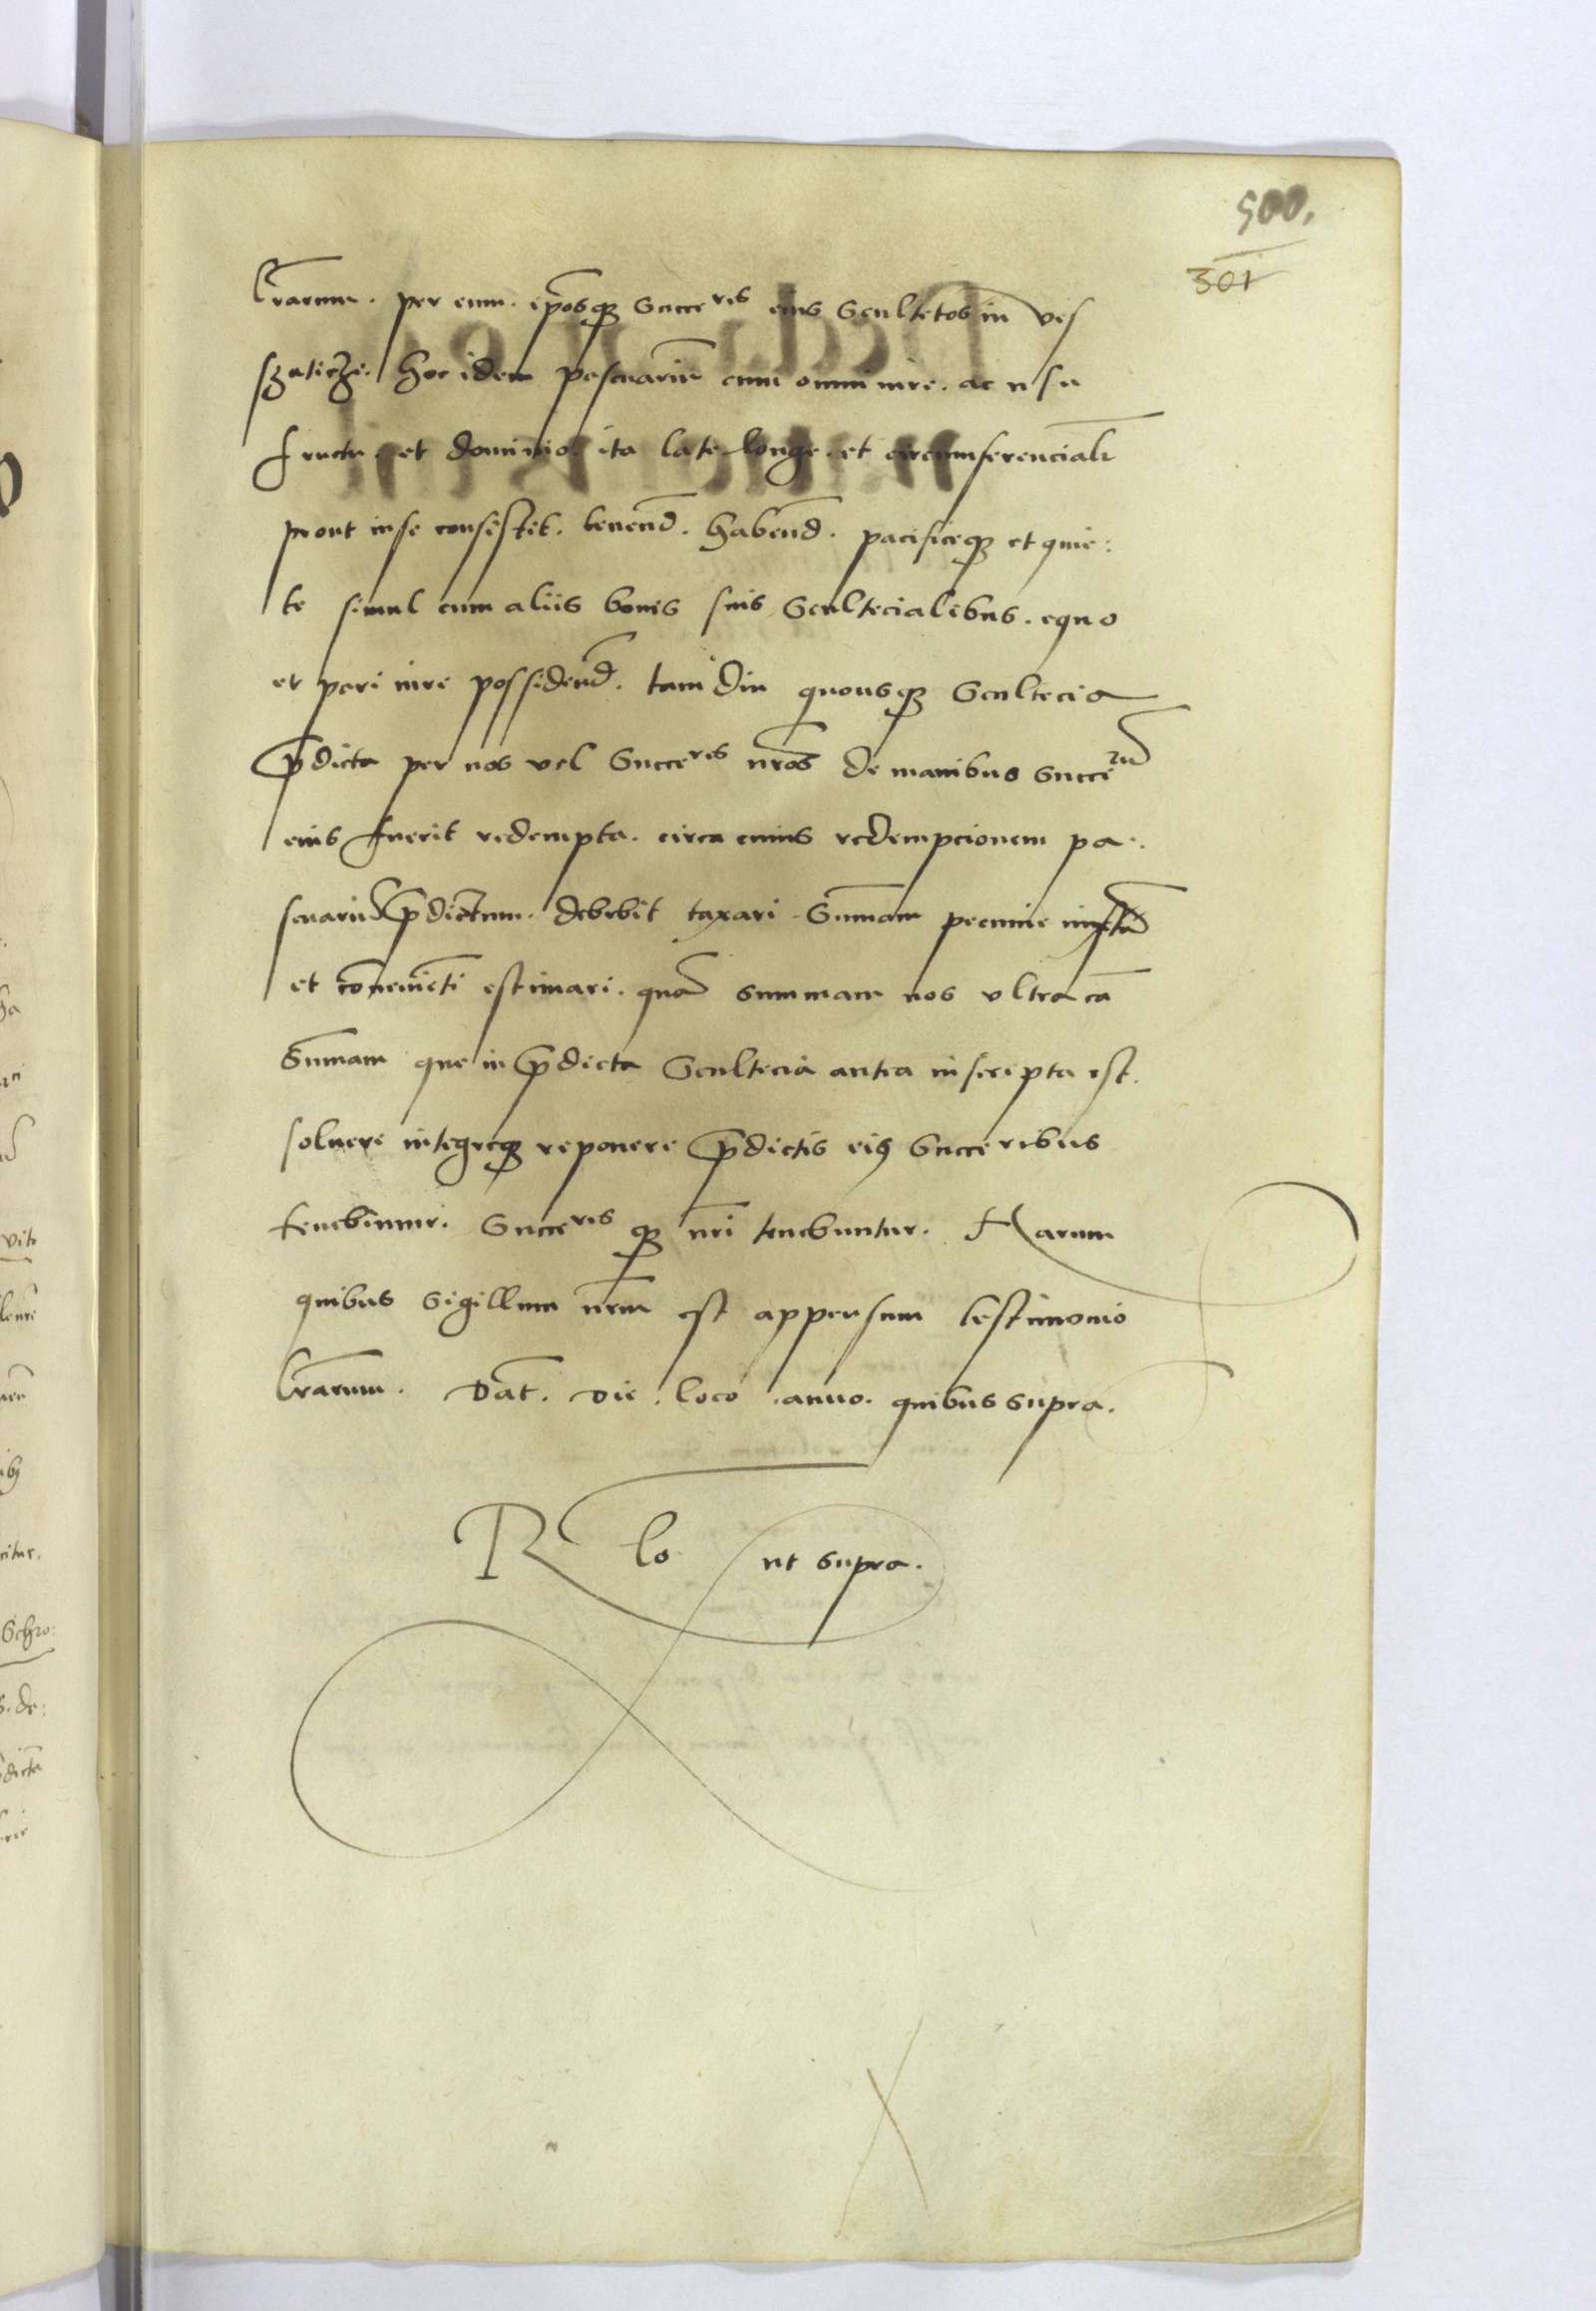 500.
301
lrarum. per eum. ip̄osq3 Succeres eius Scultetos in ves
hoc idem pascuariū cum omni iure. ac usu
fructu. et dominio. ita late longe. et circumferenciali
prout in se consistit. tenend. habend. pacificeq3 et quie:
te simul cum aliis bonis suis Scultecialibus. equo
et pari iure possidend. tam diu quousq3 Scultecia
p̄dicta per nos vel Succeres nr̄os de manibus Succerū
eius fuerit redempta. circa cuius redempcionem pa:
scuariū p̄dictum. debebit taxari Sum̄am pecunie iustā
et conveniēti estimari. quā summam nos ultra eā
Sum̄am que in p̄dicta Scultecia antea inscripta est.
solvere integreq3 reponere p̄dictis eius Succeribus
tenebimur. Succeres q3 nr̄i tenebuntur. Harum
quibus Sigillum nr̄um est appensum testimonio
lrarum. Dat. die. loco. anno. quibus supra.
R lo ut supra.